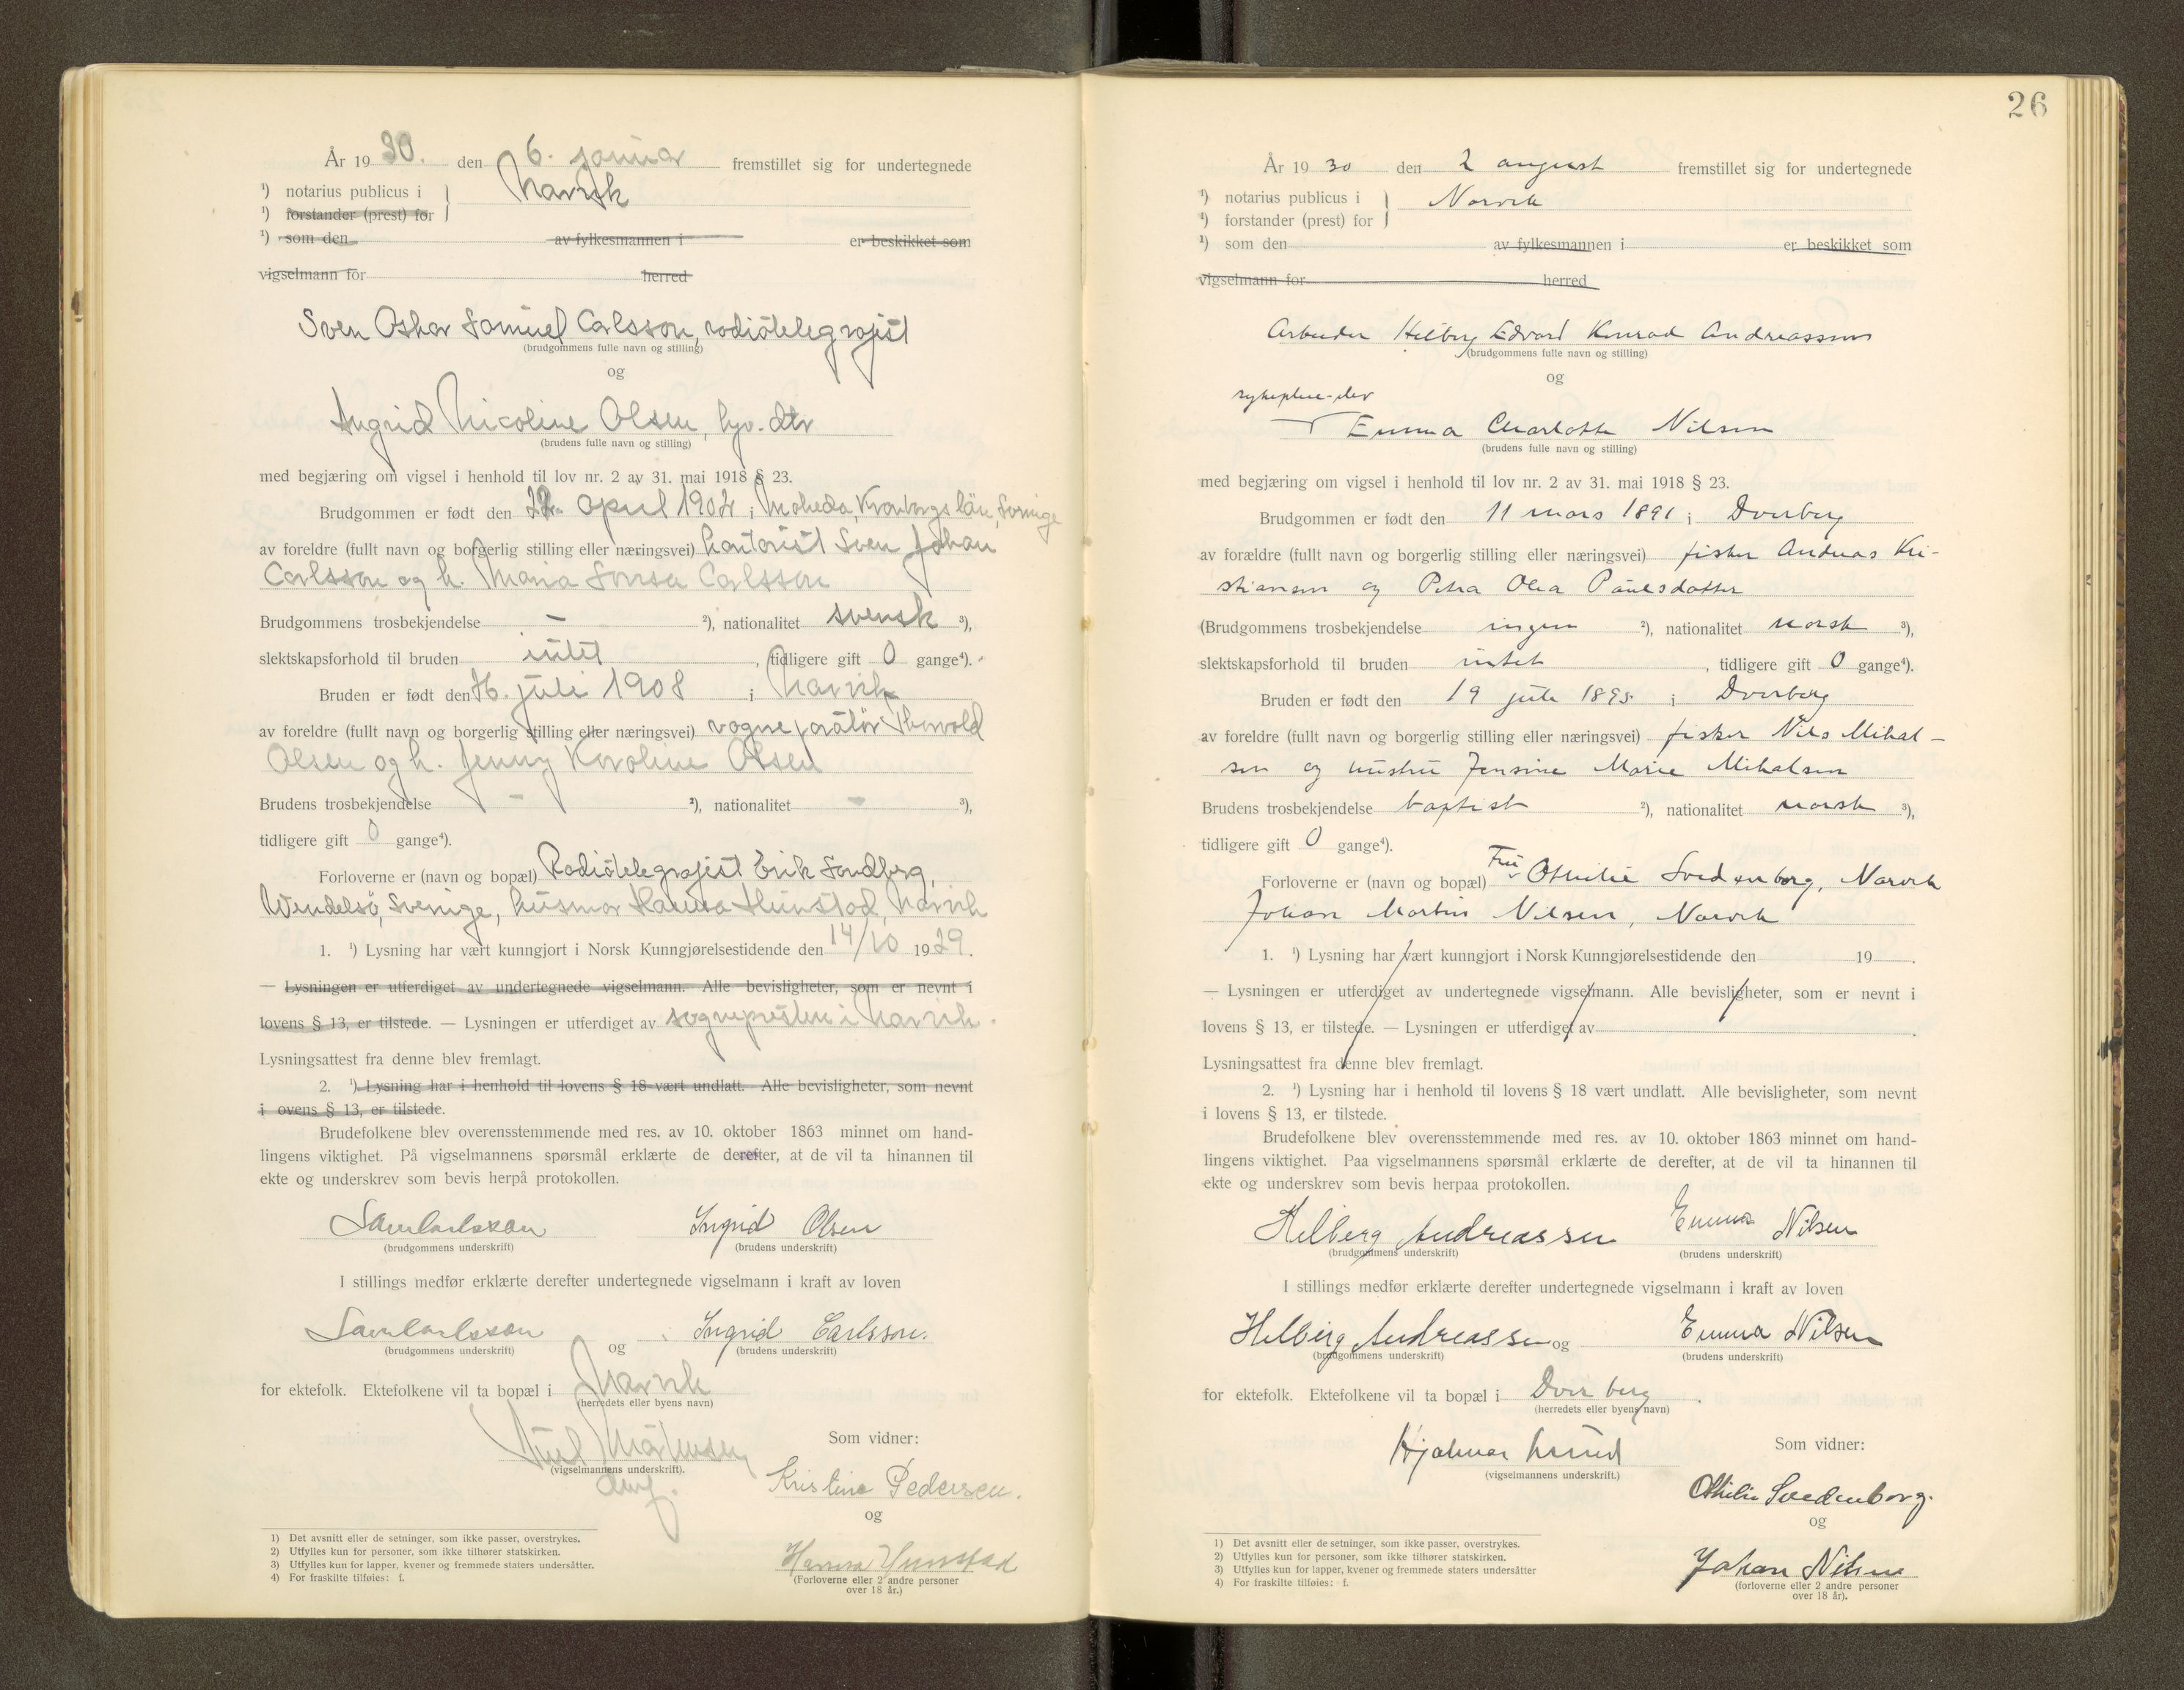 År 1930. den 6. januar fremstillet sig for undertegnede
¹) notarius publicus i } Narvik
¹) forstander (prest) for
¹) som den av fylkesmannen i er beskikket som
vigselmann for herred
Sven Oskar Samuel Carlsson, radiotelegrafist
(brudgommens fulle navn og stilling)
og
Ingrid Nicoline Olsen, hjv. dtr
(brudens fulle navn og stilling)
med begjæring om vigsel i henhold til lov nr. 2 av 31. mai 1918 § 23.
Brudgommen er født den april 1904 i Moheda, Kronbergs län, Sverige
av foreldre (fullt navn og borgerlig stilling eller næringsvei) kontorist Sven Johan
Carlsson og h. Maria Carlsson
Brudgommens trosbekjendelse — ²), nationalitet svensk ³),
slektskapsforhold til bruden intet, tidligere gift 0 gange⁴).
Bruden er født den juli 1908 i Narvik
av foreldre (fullt navn og borgerlig stilling eller næringsvei) Thorvald
Olsen og h. Jenny Karoline Olsen
Brudens trosbekjendelse - ²), nationalitet - ³),
tidligere gift 0 gange⁴).
Forloverne er (navn og bopæl) Radiotelegrafist Erik Sandberg,
Wendelsö, Sverige, husmor Hanna Hunstad, Narvik
1. ¹) Lysning har vært kunngjort i Norsk Kunngjørelsestidende den 14/10 1929.
— Lysningen er utferdiget av undertegnede vigselmann. Alle bevisligheter, som er nevnt i
lovens § 13, er tilstede. — Lysningen er utferdiget av sognepresten i Narvik.
Lysningsattest fra denne blev fremlagt.
2. ¹) Lysning har i henhold til lovens § 18 vært undlatt. Alle bevisligheter, som nevnt
i ovens § 13, er tilstede.
Brudefolkene blev overensstemmende med res. av 10. oktober 1863 minnet om hand-
lingens viktighet. På vigselmannens spørsmål erklærte de derefter, at de vil ta hinannen til
ekte og underskrev som bevis herpå protokollen.
Sam Carlsson Ingrid Olsen
(brudgommens underskrift) (brudens underskrift)
I stillings medfør erklærte derefter undertegnede vigselmann i kraft av loven
Sam Carlsson og Ingrid Carlsson.
(brudgommens underskrift) (brudens underskrift)
for ektefolk. Ektefolkene vil ta bopæl i Narvik
(herredets eller byens navn)
Som vidner:
(vigselmannens underskrift).
Kristine Pedersen.
og
Hanna Hunstad
(Forloverne eller 2 andre personer
over 18 år.)
1) Det avsnitt eller de setninger, som ikke passer, overstrykes.
2) Utfylles kun for personer, som ikke tilhører statskirken.
3) Utfylles kun for lapper, kvener og fremmede staters undersåtter.
4) For fraskilte tilføies: f.
26
År 1930 den 2 august fremstillet sig for undertegnede
¹) notarius publicus i } Narvik
¹) forstander (prest) for
¹) som den av fylkesmannen i er beskikket som
vigselmann for herred
Arbeider Helberg Edvard Konrad Andreassen
(brudgommens fulle navn og stilling)
og
sykepleie-elev
Emma Charlotte Nilsen
(brudens fulle navn og stilling)
med begjæring om vigsel i henhold til lov nr. 2 av 31. mai 1918 § 23.
Brudgommen er født den 11 mars 1891 i Dverberg
av forældre (fullt navn og borgerlig stilling eller næringsvei) fisker Andreas Kri-
stiansen og Petra Olea Paulsdatter
(Brudgommens trosbekjendelse ingen ²), nationalitet norsk ³),
slektskapsforhold til bruden intet, tidligere gift 0 gange⁴).
Bruden er født den 19 juli 1895 i Dverberg
av foreldre (fullt navn og borgerlig stilling eller næringsvei) fisker Nils Mikal-
sen og hustru Jensine Marie Mikalsen
Brudens trosbekjendelse baptist ²), nationalitet norsk ³),
tidligere gift 0 gange⁴).
Forloverne er (navn og bopæl) Fru Othilie Svedenborg, Narvik
Johan Martin Nilsen, Narvik
1. ¹) Lysning har vært kunngjort i Norsk Kunngjørelsestidende den 19 .
— Lysningen er utferdiget av undertegnede vigselmann. Alle bevisligheter, som er nevnt i
lovens § 13, er tilstede. — Lysningen er utferdiget av .
Lysningsattest fra denne blev fremlagt.
2. ¹) Lysning har i henhold til lovens § 18 vært undlatt. Alle bevisligheter, som nevnt
i lovens § 13, er tilstede.
Brudefolkene blev overensstemmende med res. av 10. oktober 1863 minnet om hand-
lingens viktighet. Paa vigselmannens spørsmål erklærte de derefter, at de vil ta hinannen til
ekte og underskrev som bevis herpaa protokollen.
Helberg Andreassen Emma Nilsen
(brudgommens underskrift) (brudens underskrift)
I stillings medfør erklærte derefter undertegnede vigselmann i kraft av loven
Helberg Andreassen og Emma Nilsen
(brudgommens underskrift) (brudens underskrift)
for ektefolk. Ektefolkene vil ta bopæl i Dverberg.
(herredets eller byens navn)
Hjalmar Lund Som vidner:
(vigselmannens underskrift.)
Othilie Svedenborg.
og
Johan Nilsen
(forloverne eller 2 andre personer
over 18 år).
1) Det avsnitt eller de setninger, som ikke passer, overstrykes.
2) Utfylles kun for personer, som ikke tilhører statskirken.
3) Utfylles kun for lapper, kvener og fremmede staters undersåtter
4) For fraskilte tilføies: f.